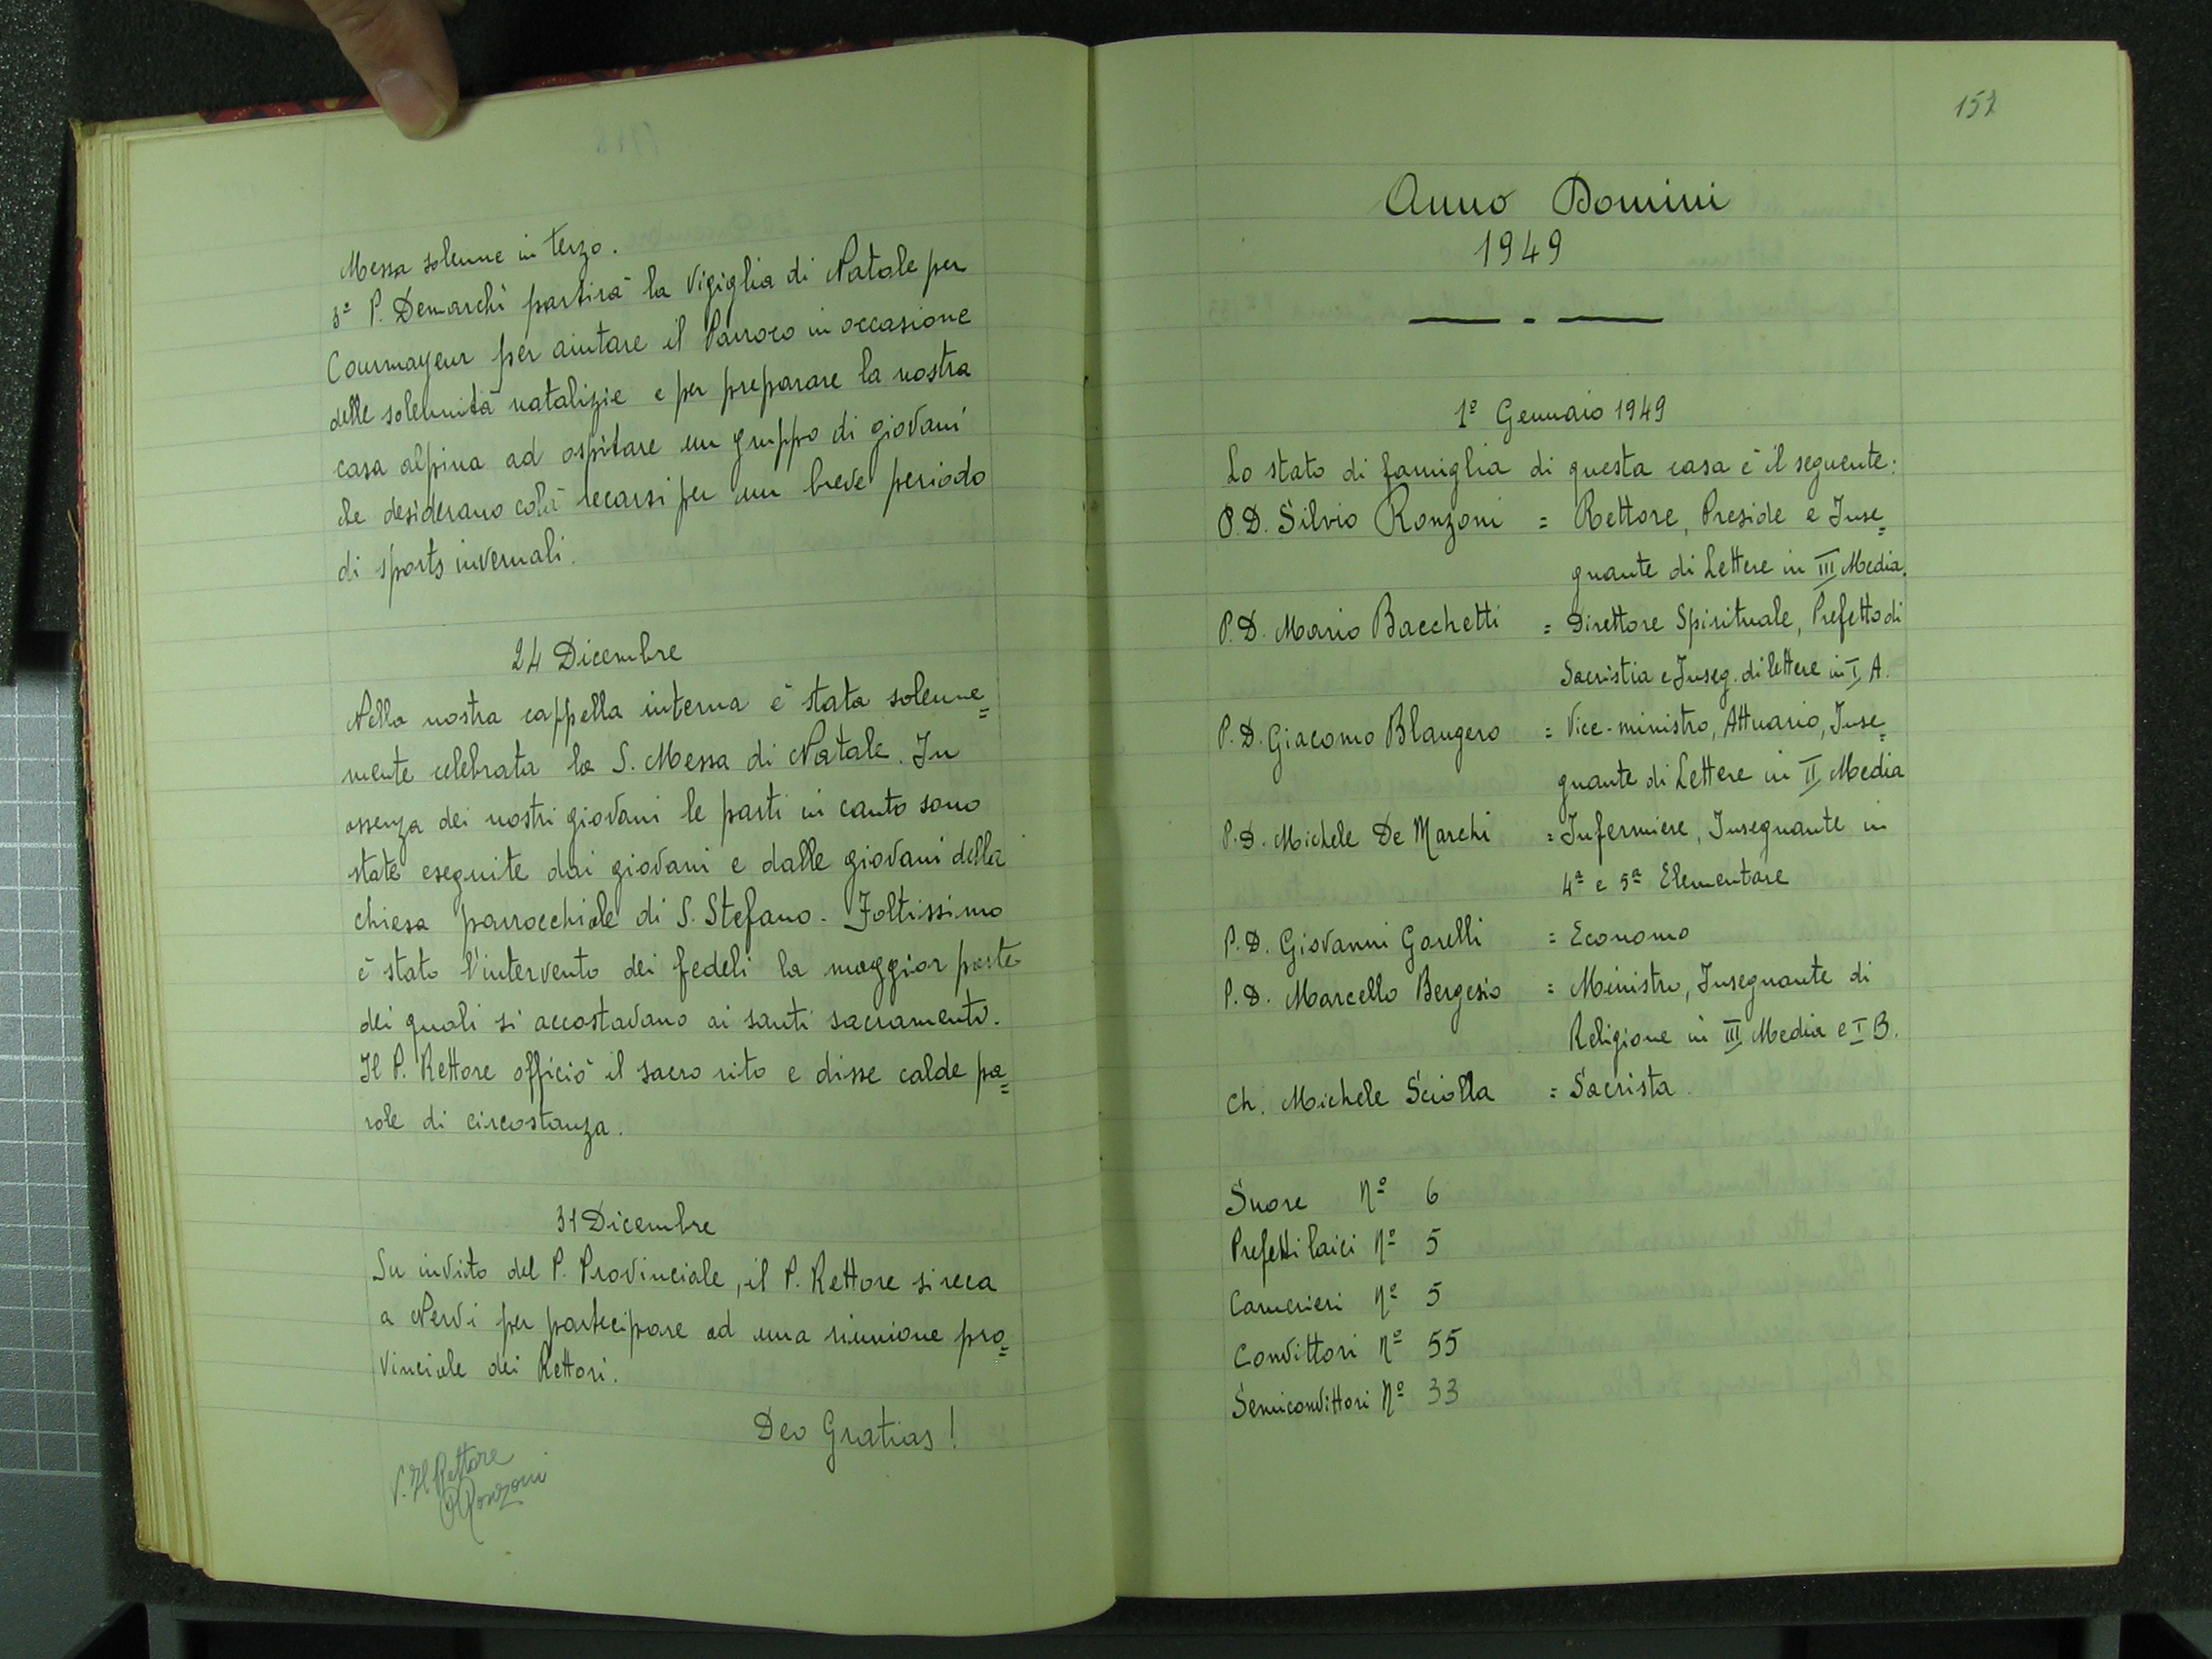 Messa solenne in terzo.
3º P. Demarchi partirà la Vigiglia di Natale per
Courmayeur per aiutare il Parroco in occasione
delle solennità natalizie e per preparare la nostra
casa alpina ad ospitare un gruppo di giovani
che desiderano colà recarsi per un breve periodo
di sports invernali.
24 Dicembre
Nella nostra cappella interna è stata solenne=
mente celebrata la S. Messa di Natale. In
assenza dei nostri giovani le parti in canto sono
state eseguite dai giovani e dalle giovani della
chiesa parrocchiale di S. Stefano. Foltissimo
è stato l'intervento dei fedeli la maggior parte
dei quali si accostavano ai santi sacramenti.
Il P. Rettore officiò il sacro rito e disse calde pa=
role di circostanza.
31 Dicembre
Su invito del P. Provinciale, il P. Rettore si reca
a Nervi per partecipare ad una riunione pro=
vinciale dei Rettori.
Deo Gratias!
V. Il Rettore
P Ronzoni
157
Anno Domini
1949
1º Gennaio 1949
Lo stato di famiglia di questa casa è il seguente:
P. D. Silvio Ronzoni = Rettore, Preside e Inse=
gnante di Lettere in III Media.
P. D. Mario Bacchetti = Direttore Spirituale, Prefetto di
Sacristia e Inseg. di lettere in I A.
P. D. Giacomo Blangero = Vice-ministro, Attuario, Inse=
gnante di Lettere in II Media
P. D. Michele De Marchi = Infermiere, Insegnante in
4ª e 5ª Elementare
P. D. Giovanni Gorelli = Economo
P. D. Marcello Bergesio = Ministro, Insegnante di
Religione in III Media e I B.
Ch. Michele Sciolla = Sacrista.
Suore Nº 6
Prefetti laici Nº 5
Camerieri Nº 5
Convittori Nº 55
Semiconvittori Nº 33